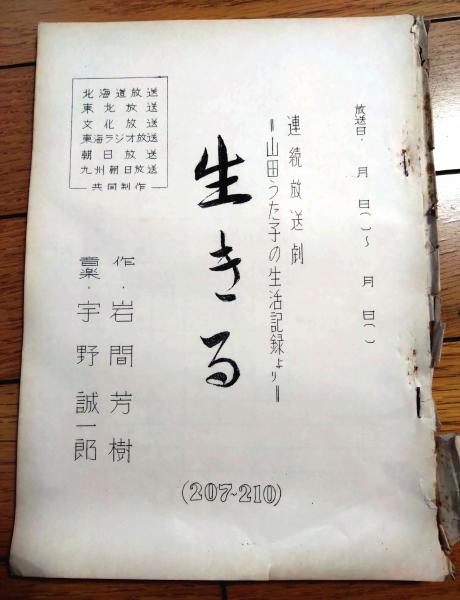 放送日・　月　日（　）〜　月　日（　）
連続放送劇
＝山田うた子の生活記録より＝
生きる
北海道放送
東北放送
文化放送
東海ラジオ放送
朝日放送
九州朝日放送
共同制作
作・岩間芳樹
音楽・宇野誠一郎
(207~210)